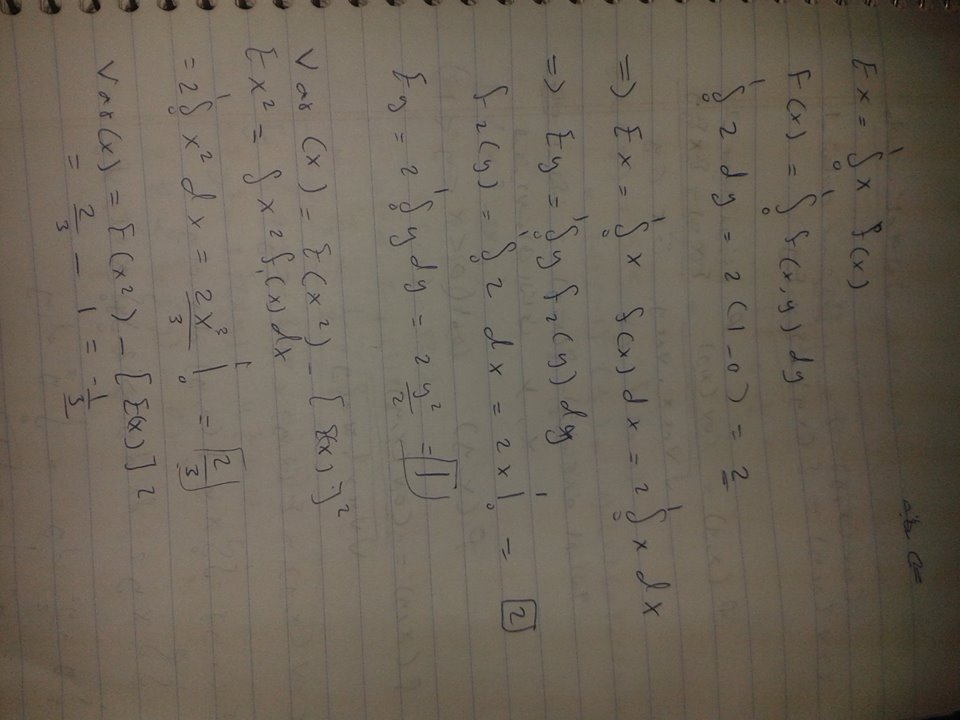 Ex = ∫₀¹ x f(x)
F(x) = ∫₀¹ f(x,y) dy
∫₀¹ 2 dy = 2(1-0) = 2
=> Ex = ∫₀¹ x f(x) dx = 2 ∫₀¹ x dx
=> Ey = ∫₀¹ y f₂(y) dy
f₂(y) = ∫₀¹ 2 dx = 2x |₀¹ = 2
Ey = 2 ∫₀¹ y dy = 2 y²/2 = 1
Var (x) = E(x²) - [E(x)]²
Ex² = ∫ x² f₁(x) dx
= 2 ∫₀¹ x² dx = 2x³/3 |₀¹ = 2/3
Var(x) = E(x²) - [E(x)]²
= 2/3 - 1 = -1/3